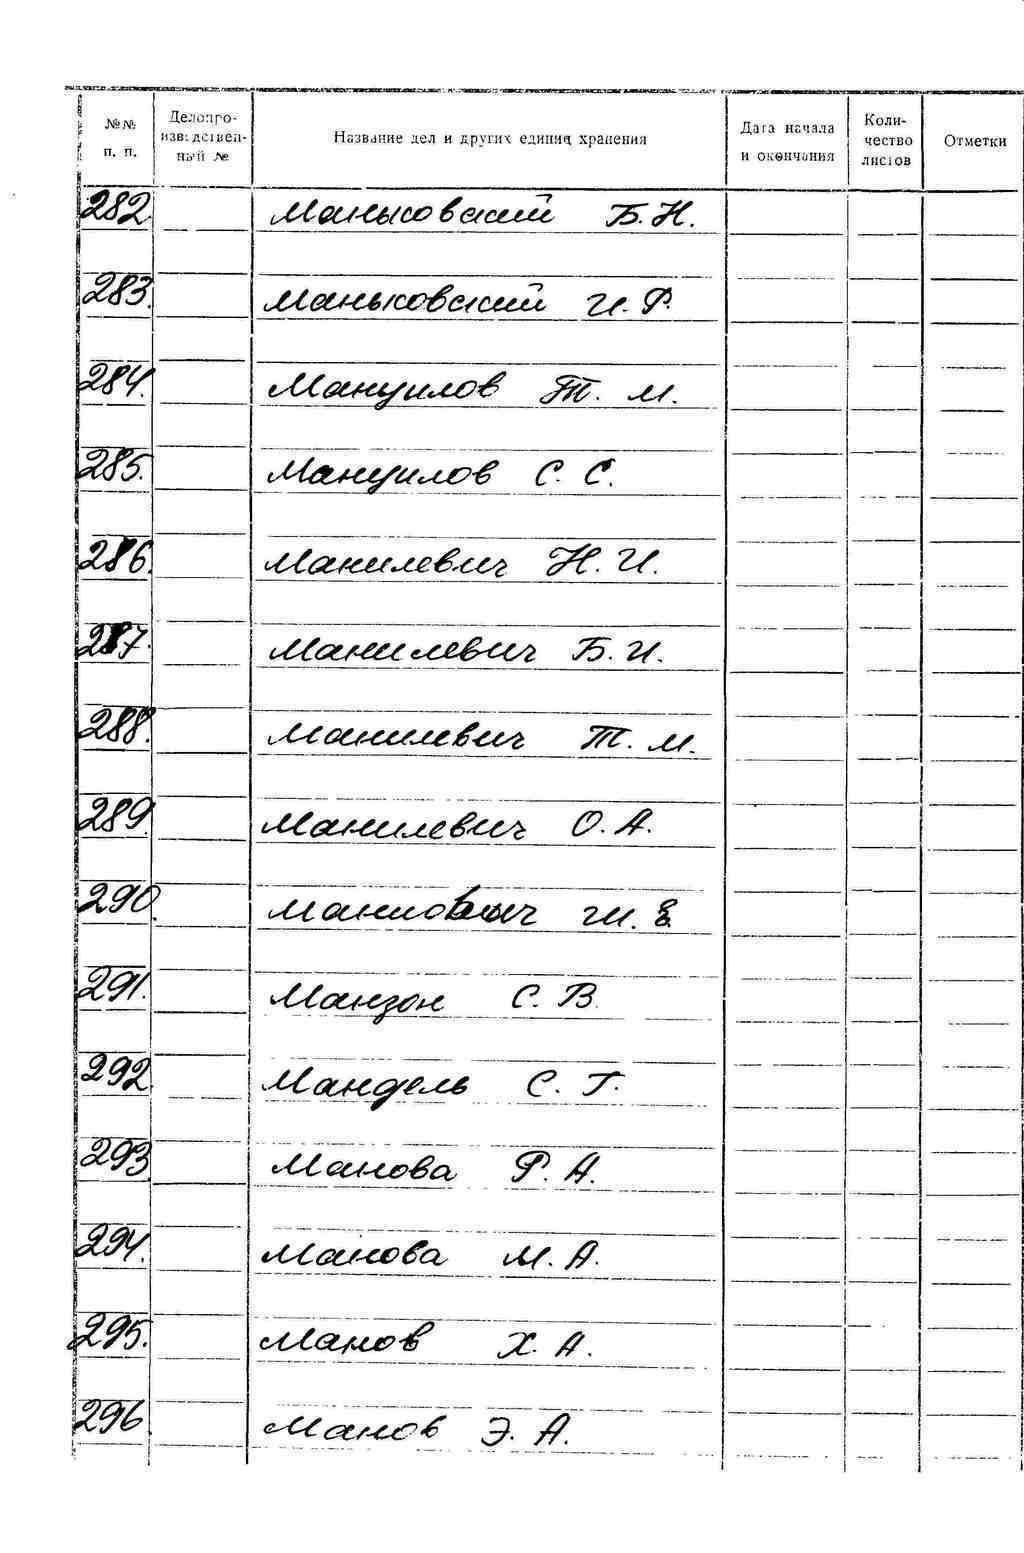 №№ п. п.
Делопро-
изводствен-
ный №
Название дел и других единиц хранения
Дата начала
и окончания
Коли-
чество
листов
Отметки
282. Маньковский Б. Н.
283. Маньковский И. Р.
284. Мануилов Т. М.
285. Мануилов С. С.
286. Манилевич Н. И.
287. Манилевич Б. И.
288. Манилевич Т. М.
289. Манилевич О. А.
290. Манович
291. Манзон С. В.
292. Мандель С. Г.
293. Манова Р. А.
294. Манова М. А.
295. Манов Х. А.
296. Манов Э. А.